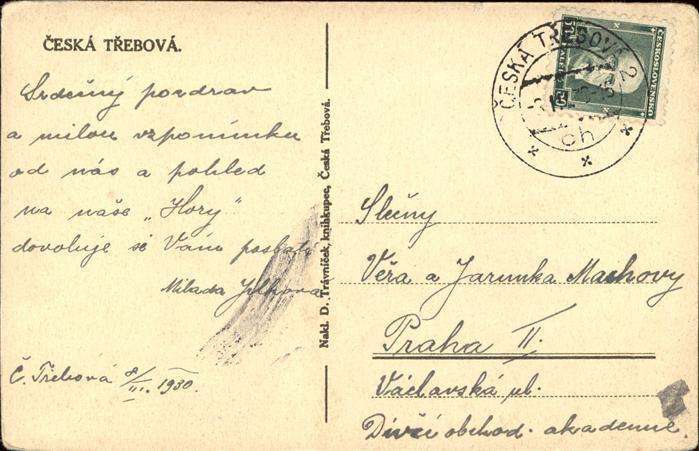 ČESKÁ TŘEBOVÁ.
Srdečný pozdrav
a milou vzpomínku
od nás a pohled
na naše „Hory"
dovoluje si Vám poslati
Milada
Č. Třebová 8/III. 1930.
Nakl. D. Trávníček, knihkupec, Česká Třebová.
ČESKÁ TŘEBOVÁ 2
ch
ČESKOSLOVENSKO
50
Slečny
Věra a Jarunka Machovy
Praha II.
Václavská ul.
Dívčí obchod. akademie